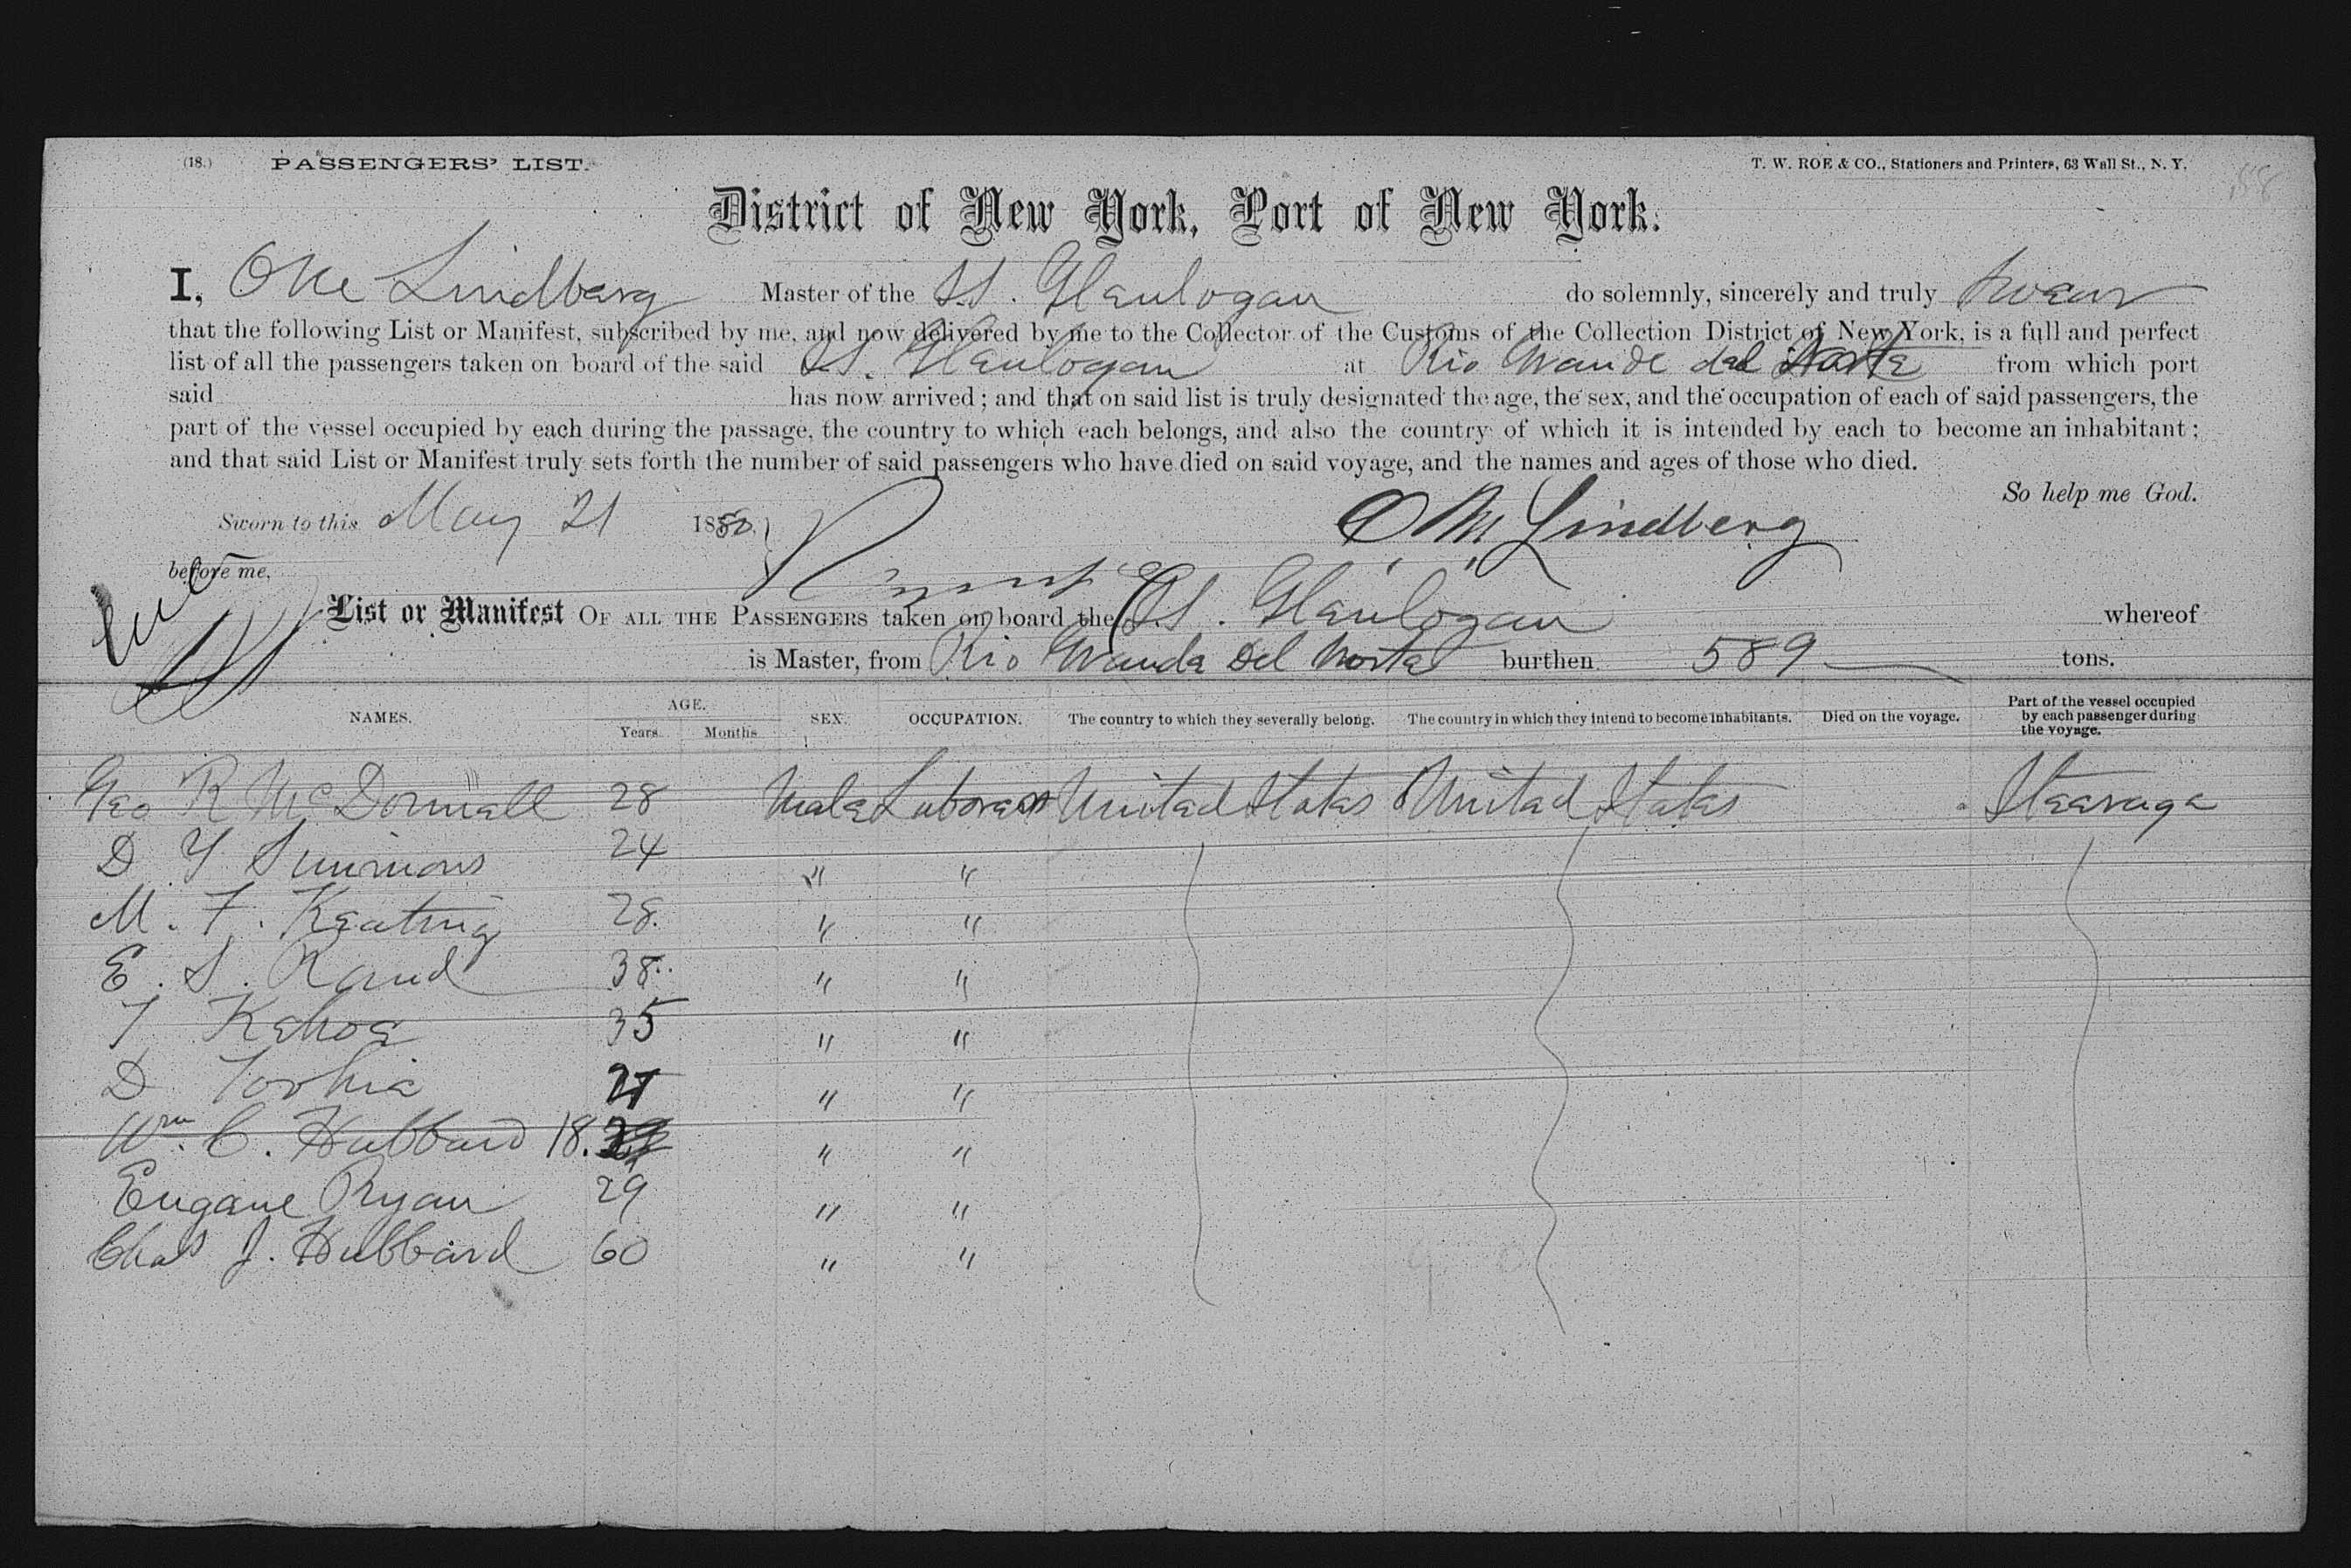 (18.) PASSENGERS' LIST. T. W. ROE & CO., Stationers and Printers, 63 Wall St., N. Y.
District of New York, Port of New York.
I, Lindberg Master of the SS. Glenlogan do solemnly, sincerely and truly swear
that the following List or Manifest, subscribed by me, and now delivered by me to the Collector of the Customs of the Collection District of New York, is a full and perfect
list of all the passengers taken on board of the said SS. Glenlogan at Rio Grande del Norte from which port
said has now arrived; and that on said list is truly designated the age, the sex, and the occupation of each of said passengers, the
part of the vessel occupied by each during the passage, the country to which each belongs, and also the country of which it is intended by each to become an inhabitant;
and that said List or Manifest truly sets forth the number of said passengers who have died on said voyage, and the names and ages of those who died.
So help me God.
Sworn to this May 21 1880. O M Lindberg
before me,
List or Manifest OF ALL THE PASSENGERS taken on board the SS. Glenlogan whereof
is Master, from Rio Grande Del Norte burthen 589 tons.
NAMES. AGE. Years. Months. SEX. OCCUPATION. The country to which they severally belong. The country in which they intend to become inhabitants. Died on the voyage. Part of the vessel occupied by each passenger during the voyage.
Geo R McDonnell 28 Male Laborers United States United States Steerage
D Y Simmons 24 " "
M. F. Keating 28. " "
E. S. Rand 38. " "
T Kehoe 35 " "
D 21 " "
Wm. C. Hubbard 18. " "
Eugene Ryan 29 " "
Chas J. Hubbard 60 " "